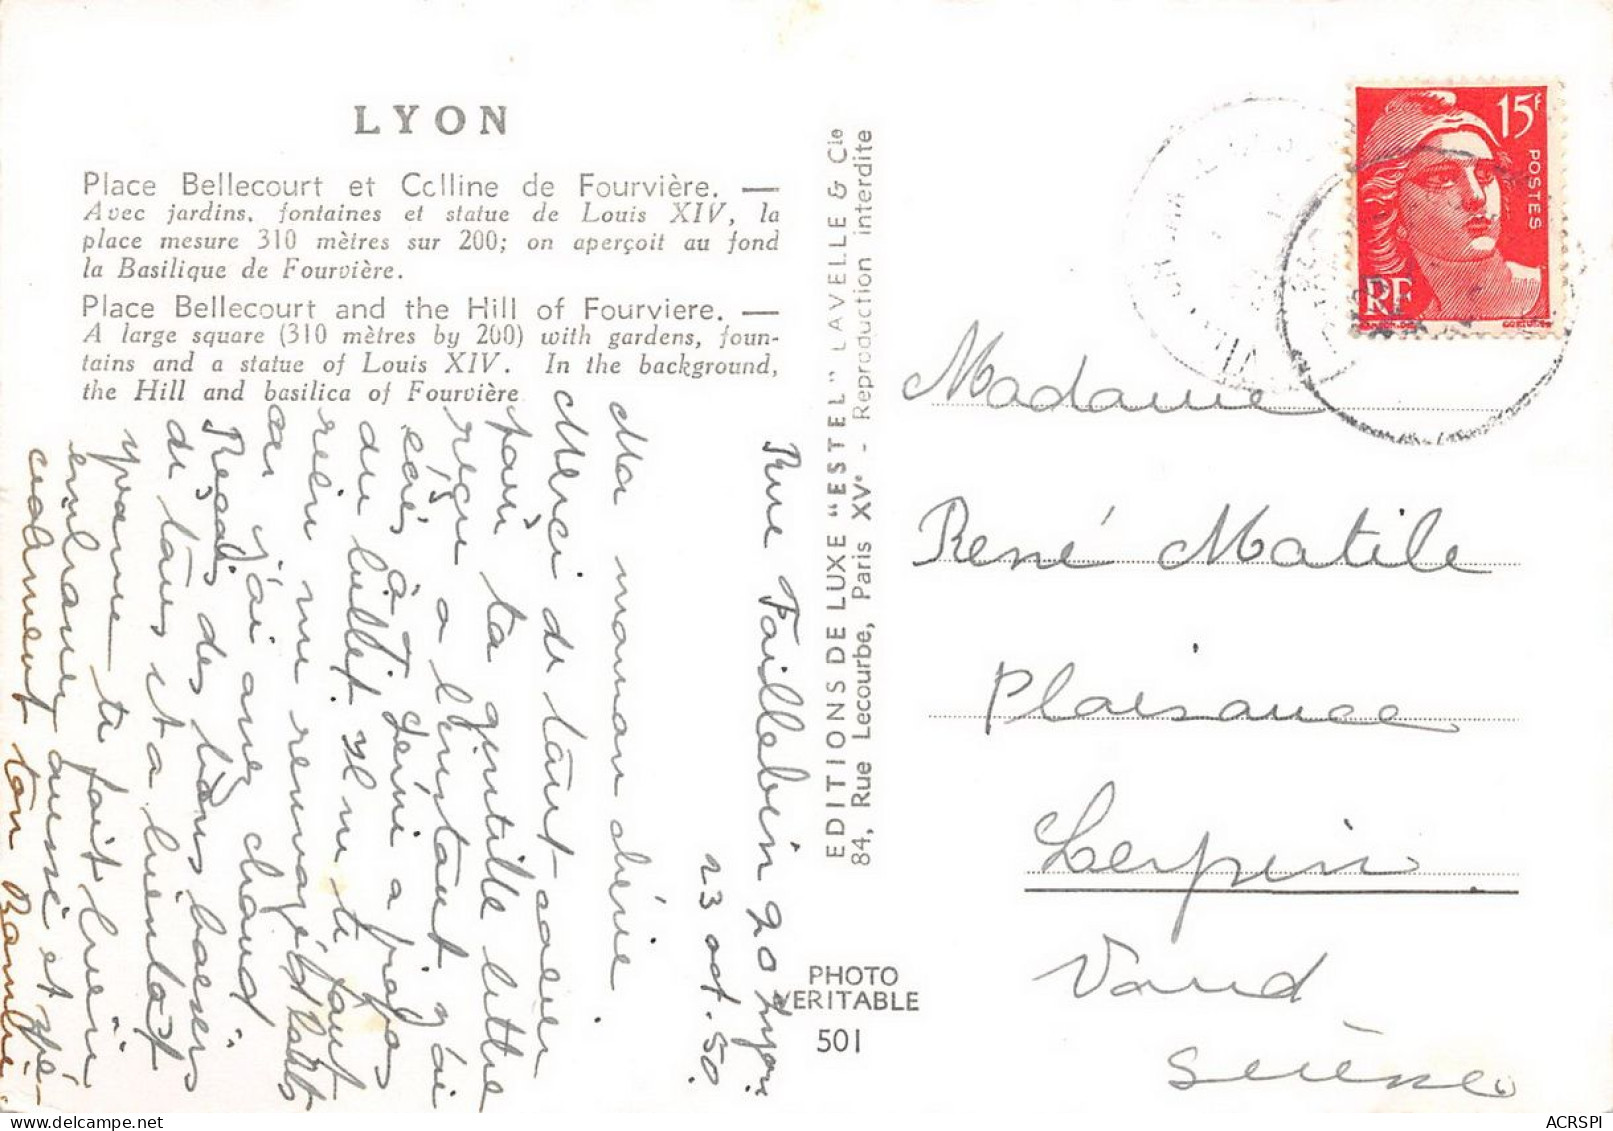 LYON
Place Bellecourt et Cclline de Fourvière. —
Avec jardins, fontaines et statue de Louis XIV, la
place mesure 310 mètres sur 200; on aperçoit au fond
la Basilique de Fourvière.
Place Bellecourt and the Hill of Fourviere. —
A large square (310 mètres by 200) with gardens, foun-
tains and a statue of Louis XIV. In the background,
the Hill and basilica of Fourvière
Rue Faillebin 20 Lyon
23 oct. 50.
Ma maman chérie
Merci de tout coeur
pour ta gentille lettre
reçue à l'instant. J'ai
écris à Irénie à propos
du billet. Il ne te faut
rien me renvoyé
car j'ai avez chaud
Regards des bons baisers
de tous et a bientôt
Yvonne te fait bien
embrasser aussi et Yvé-
ton Bambin.
EDITIONS DE LUXE "ESTEL" LAVELLE & Cie
84, Rue Lecourbe, Paris XVe - Reproduction interdite
PHOTO
VERITABLE
501
15F
POSTES
RF
Madame
René Matile
Plaisance
Lerpin
Vaud
Suisse
ACRSPI